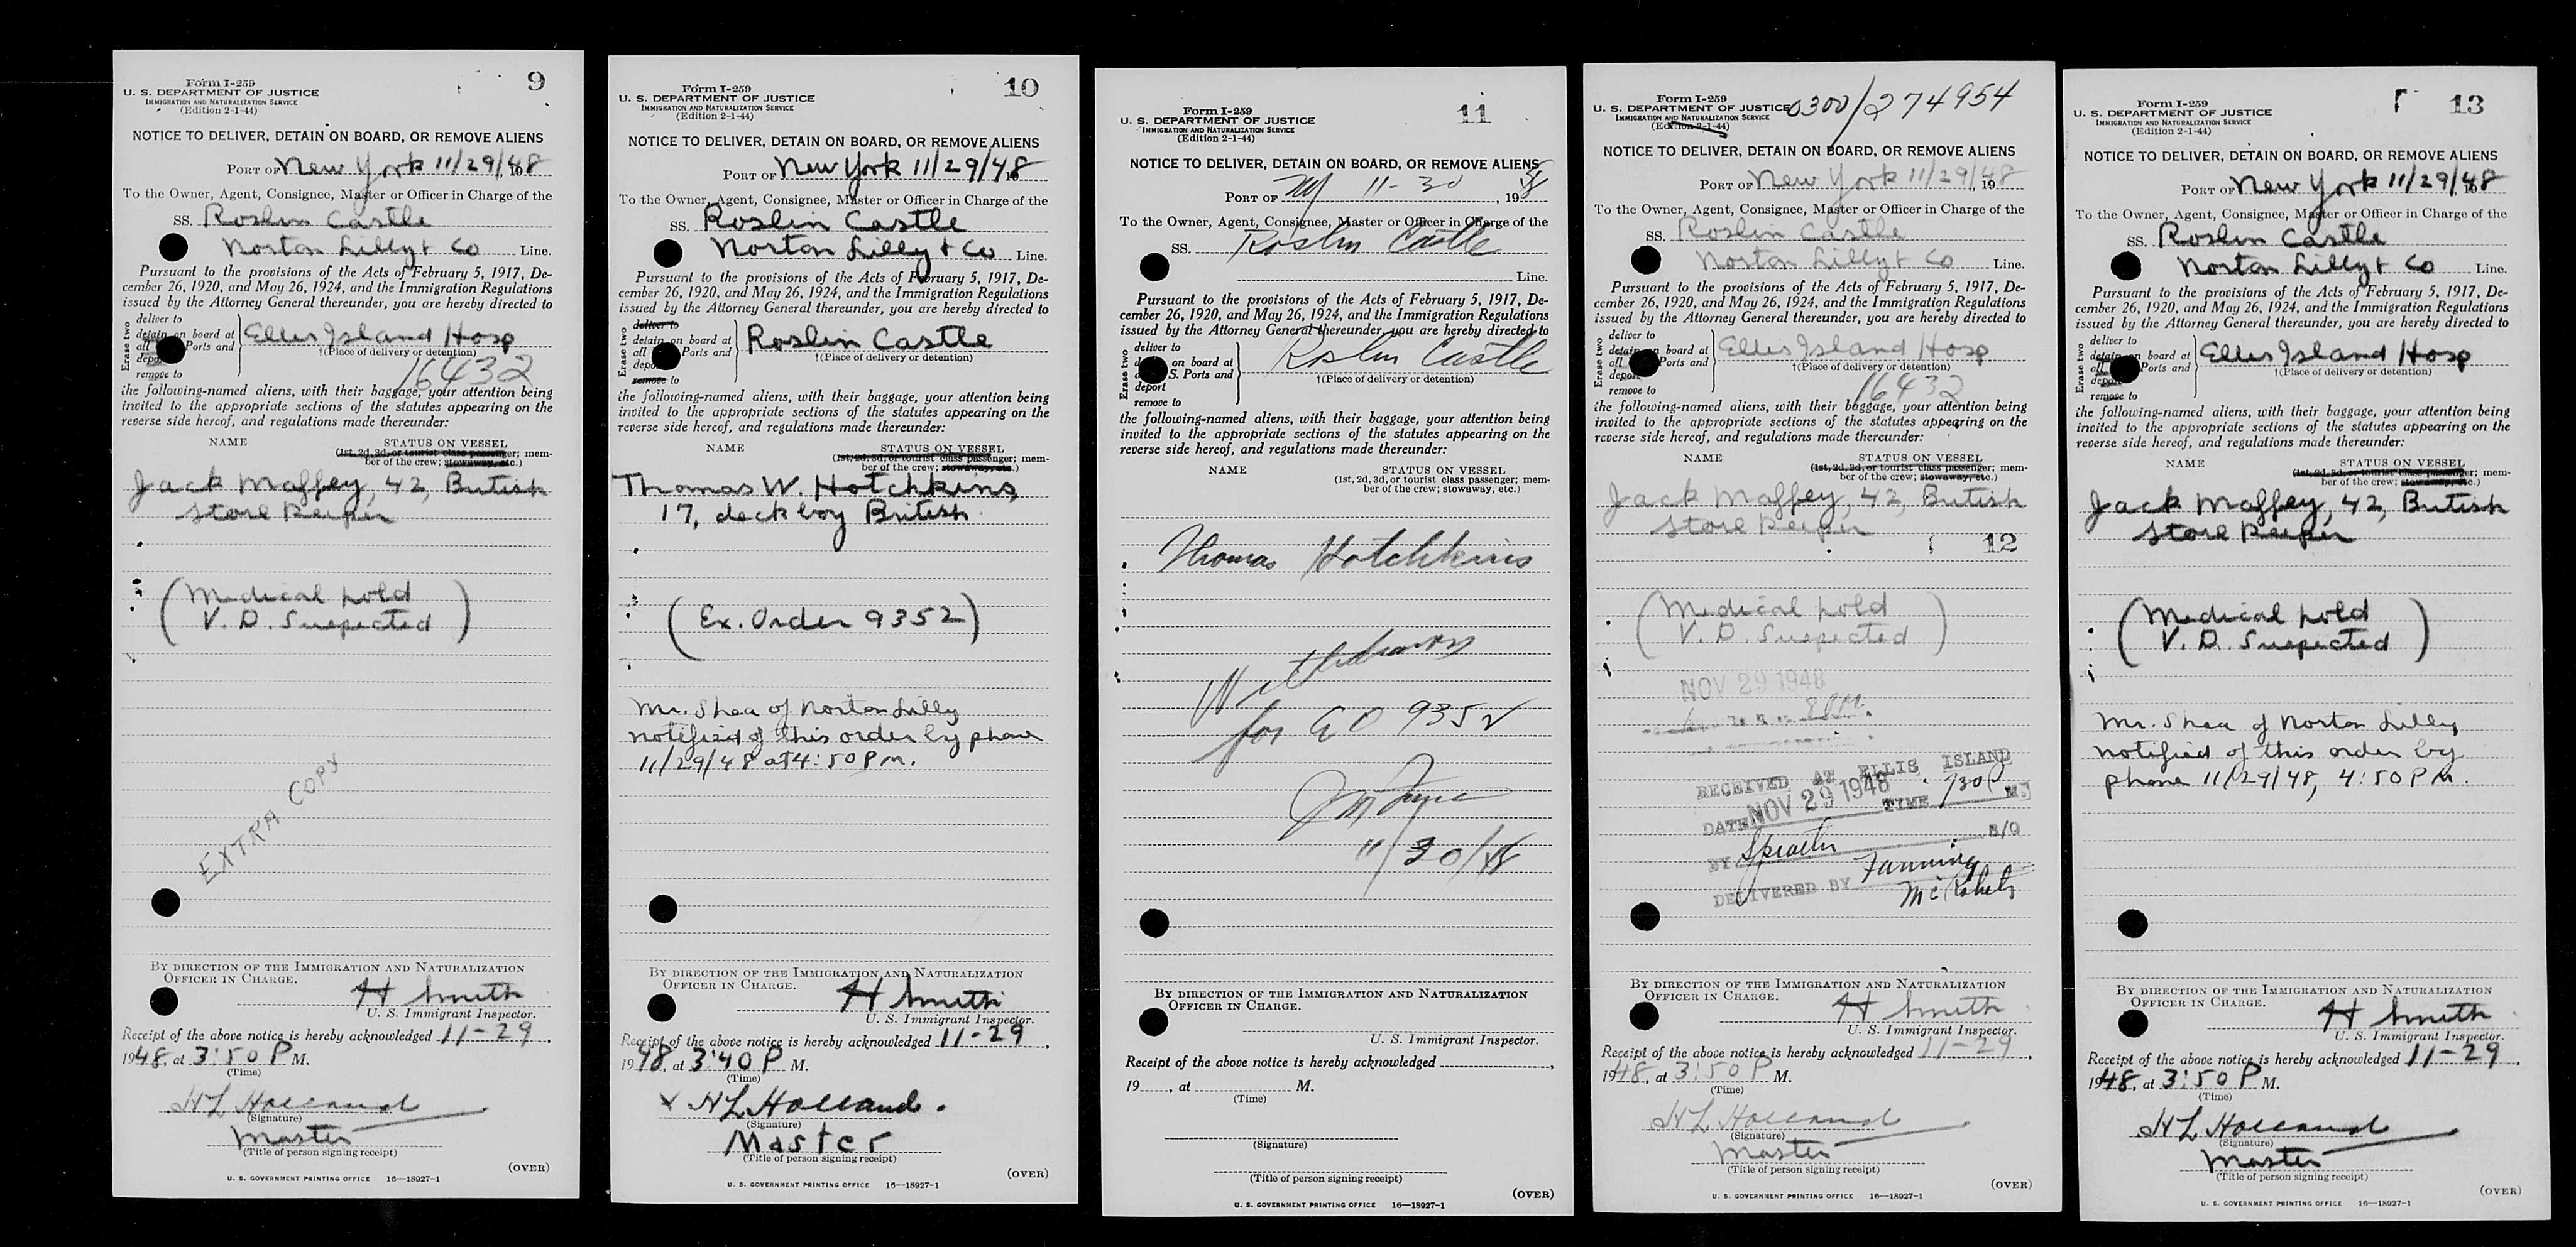 Form I-259
U. S. DEPARTMENT OF JUSTICE
IMMIGRATION AND NATURALIZATION SERVICE
(Edition 2-1-44)
9
NOTICE TO DELIVER, DETAIN ON BOARD, OR REMOVE ALIENS
PORT OF New York 11/29/48
To the Owner, Agent, Consignee, Master or Officer in Charge of the
SS. Roslin Castle
Norton Lilly & Co Line.
Pursuant to the provisions of the Acts of February 5, 1917, De-
cember 26, 1920, and May 26, 1924, and the Immigration Regulations
issued by the Attorney General thereunder, you are hereby directed to
Erase two
deliver to
detain on board at
all Ports and
depo
remove to
Ellis Island Hosp
†(Place of delivery or detention)
16432
the following-named aliens, with their baggage, your attention being
invited to the appropriate sections of the statutes appearing on the
reverse side hereof, and regulations made thereunder:
NAME STATUS ON VESSEL
(1st, 2d, 3d, or tourist class passenger; mem-
ber of the crew; stowaway, etc.)
Jack Maffey, 42, British
Store Keeper
(Medical hold
V. D. Suspected)
EXTRA COPY
BY DIRECTION OF THE IMMIGRATION AND NATURALIZATION
OFFICER IN CHARGE.
H Smith
U. S. Immigrant Inspector.
Receipt of the above notice is hereby acknowledged 11-29,
1948, at 3:50 P M.
(Time)
HL Holland
(Signature)
Master
(Title of person signing receipt)
(OVER)
U. S. GOVERNMENT PRINTING OFFICE 16—18927-1
Form I-259
U. S. DEPARTMENT OF JUSTICE
IMMIGRATION AND NATURALIZATION SERVICE
(Edition 2-1-44)
10
NOTICE TO DELIVER, DETAIN ON BOARD, OR REMOVE ALIENS
PORT OF New York 11/29/48
To the Owner, Agent, Consignee, Master or Officer in Charge of the
SS. Roslin Castle
Norton Lilly & Co Line.
Pursuant to the provisions of the Acts of February 5, 1917, De-
cember 26, 1920, and May 26, 1924, and the Immigration Regulations
issued by the Attorney General thereunder, you are hereby directed to
Erase two
deliver to
detain on board at
all Ports and
depo
remove to
Roslin Castle
†(Place of delivery or detention)
the following-named aliens, with their baggage, your attention being
invited to the appropriate sections of the statutes appearing on the
reverse side hereof, and regulations made thereunder:
NAME STATUS ON VESSEL
(1st, 2d, 3d, or tourist class passenger; mem-
ber of the crew; stowaway, etc.)
Thomas W. Hotchkins,
17, deck boy British
(Ex. Order 9352)
Mr. Shea of Norton Lilly
notified of this order by phone
11/29/48 at 4:50 P.m.
BY DIRECTION OF THE IMMIGRATION AND NATURALIZATION
OFFICER IN CHARGE.
H Smith
U. S. Immigrant Inspector.
Receipt of the above notice is hereby acknowledged 11-29,
1948, at 3:40 P M.
(Time)
x HL Holland.
(Signature)
Master
(Title of person signing receipt)
(OVER)
U. S. GOVERNMENT PRINTING OFFICE 16—18927-1
Form I-259
U. S. DEPARTMENT OF JUSTICE
IMMIGRATION AND NATURALIZATION SERVICE
(Edition 2-1-44)
11
NOTICE TO DELIVER, DETAIN ON BOARD, OR REMOVE ALIENS
PORT OF NY 11-30, 1948
To the Owner, Agent, Consignee, Master or Officer in Charge of the
SS. Roslin Castle
Line.
Pursuant to the provisions of the Acts of February 5, 1917, De-
cember 26, 1920, and May 26, 1924, and the Immigration Regulations
issued by the Attorney General thereunder, you are hereby directed to
Erase two
deliver to
d on board at
S. Ports and
deport
remove to
Roslin Castle
†(Place of delivery or detention)
the following-named aliens, with their baggage, your attention being
invited to the appropriate sections of the statutes appearing on the
reverse side hereof, and regulations made thereunder:
NAME STATUS ON VESSEL
(1st, 2d, 3d, or tourist class passenger; mem-
ber of the crew; stowaway, etc.)
Thomas Hotchkins
Withdrawn
for EO 9352
11/30/48
BY DIRECTION OF THE IMMIGRATION AND NATURALIZATION
OFFICER IN CHARGE.
U. S. Immigrant Inspector.
Receipt of the above notice is hereby acknowledged ,
19 , at M.
(Time)
(Signature)
(Title of person signing receipt)
(OVER)
U. S. GOVERNMENT PRINTING OFFICE 16—18927-1
Form I-259
U. S. DEPARTMENT OF JUSTICE
IMMIGRATION AND NATURALIZATION SERVICE
(Edition 2-1-44)
0300/274954
NOTICE TO DELIVER, DETAIN ON BOARD, OR REMOVE ALIENS
PORT OF New York 11/29/48 19
To the Owner, Agent, Consignee, Master or Officer in Charge of the
SS. Roslin Castle
Norton Lilly & Co Line.
Pursuant to the provisions of the Acts of February 5, 1917, De-
cember 26, 1920, and May 26, 1924, and the Immigration Regulations
issued by the Attorney General thereunder, you are hereby directed to
Erase two
deliver to
detain on board at
all Ports and
depo
remove to
Ellis Island Hosp
†(Place of delivery or detention)
16432
the following-named aliens, with their baggage, your attention being
invited to the appropriate sections of the statutes appearing on the
reverse side hereof, and regulations made thereunder:
NAME STATUS ON VESSEL
(1st, 2d, 3d, or tourist class passenger; mem-
ber of the crew; stowaway, etc.)
Jack Maffey, 42, British
Store Keeper
12
(Medical hold
V. D. Suspected)
NOV 29 1948
RECEIVED AT ELLIS ISLAND
DATE NOV 29 1948 TIME 730P M
BY S/O
DELIVERED BY Fanning
BY DIRECTION OF THE IMMIGRATION AND NATURALIZATION
OFFICER IN CHARGE.
H Smith
U. S. Immigrant Inspector.
Receipt of the above notice is hereby acknowledged 11-29,
1948, at 3:50 P M.
(Time)
HL Holland
(Signature)
Master
(Title of person signing receipt)
(OVER)
U. S. GOVERNMENT PRINTING OFFICE 16—18927-1
Form I-259
U. S. DEPARTMENT OF JUSTICE
IMMIGRATION AND NATURALIZATION SERVICE
(Edition 2-1-44)
13
NOTICE TO DELIVER, DETAIN ON BOARD, OR REMOVE ALIENS
PORT OF New York 11/29/48
To the Owner, Agent, Consignee, Master or Officer in Charge of the
SS. Roslin Castle
Norton Lilly & Co Line.
Pursuant to the provisions of the Acts of February 5, 1917, De-
cember 26, 1920, and May 26, 1924, and the Immigration Regulations
issued by the Attorney General thereunder, you are hereby directed to
Erase two
deliver to
detain on board at
all Ports and
depo
remove to
Ellis Island Hosp
†(Place of delivery or detention)
the following-named aliens, with their baggage, your attention being
invited to the appropriate sections of the statutes appearing on the
reverse side hereof, and regulations made thereunder:
NAME STATUS ON VESSEL
(1st, 2d, 3d, or tourist class passenger; mem-
ber of the crew; stowaway, etc.)
Jack Maffey, 42, British
Store Keeper
(Medical hold
V. D. Suspected)
Mr. Shea of Norton Lilly
notified of this order by
phone 11/29/48, 4:50 P M.
BY DIRECTION OF THE IMMIGRATION AND NATURALIZATION
OFFICER IN CHARGE.
H Smith
U. S. Immigrant Inspector.
Receipt of the above notice is hereby acknowledged 11-29,
1948, at 3:50 P M.
(Time)
HL Holland
(Signature)
Master
(Title of person signing receipt)
(OVER)
U. S. GOVERNMENT PRINTING OFFICE 16—18927-1